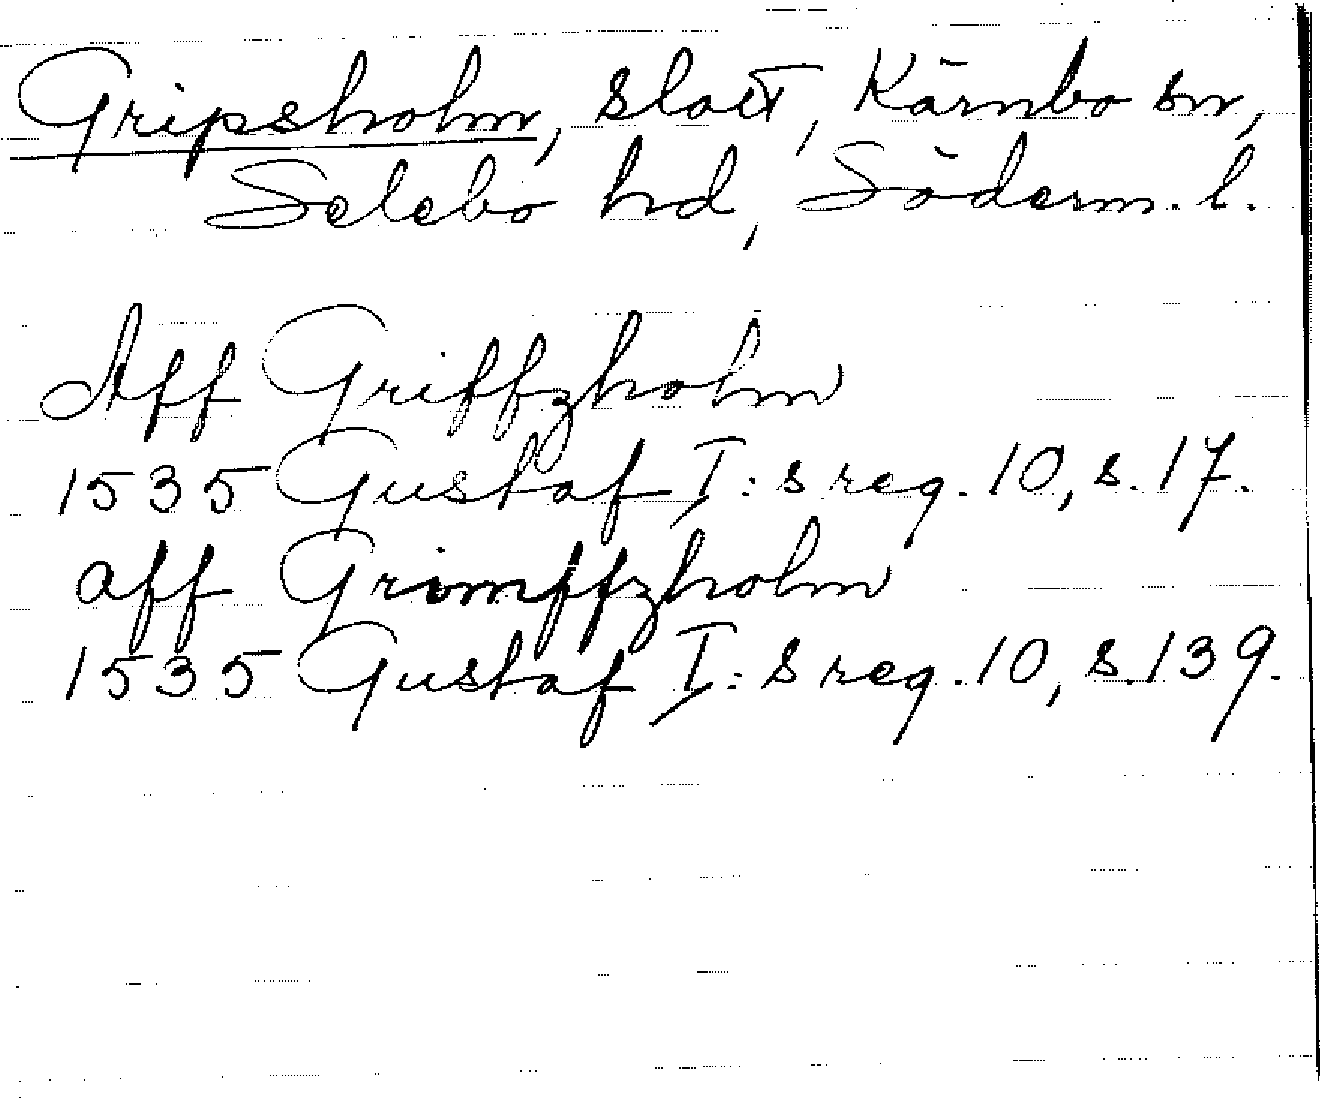 Gripsholm, slott, Kärnbo sn,
Selebo hd, Söderm. l.
Aff Griffzholm
1535 Gustaf I:s reg. 10, s. 17.
aff Grimffzholm
1535 Gustaf I:s reg. 10, s. 139.